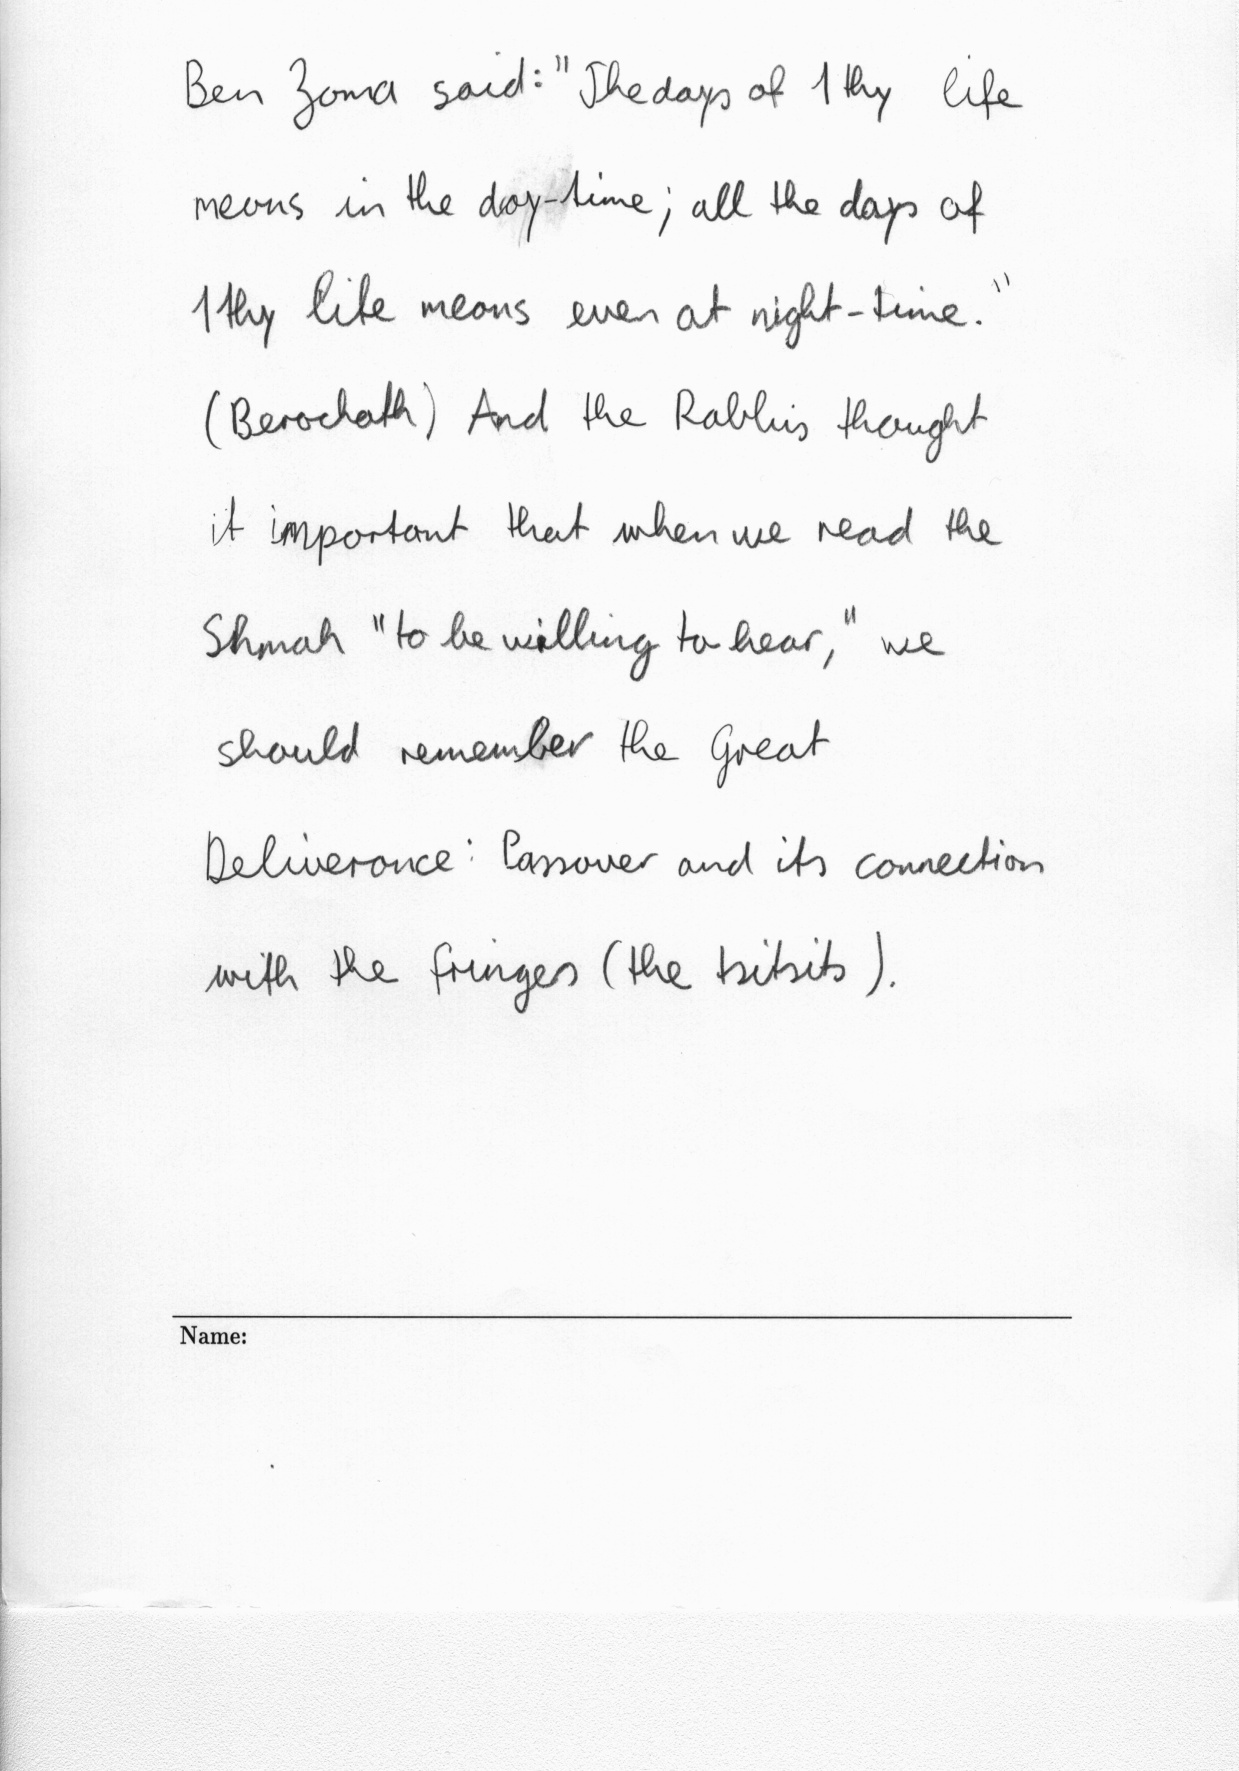 Ben Zoma said: "The days of 1thy life
means in the day-time; all the days of
1thy life means even at night-time."
(Berochath) And the Rabbis thought
it important that when we read the
Shmah "to be willing to hear," we
should remember the Great
Deliverance: Passover and its connection
with the fringes (the tsitsits).
Name: